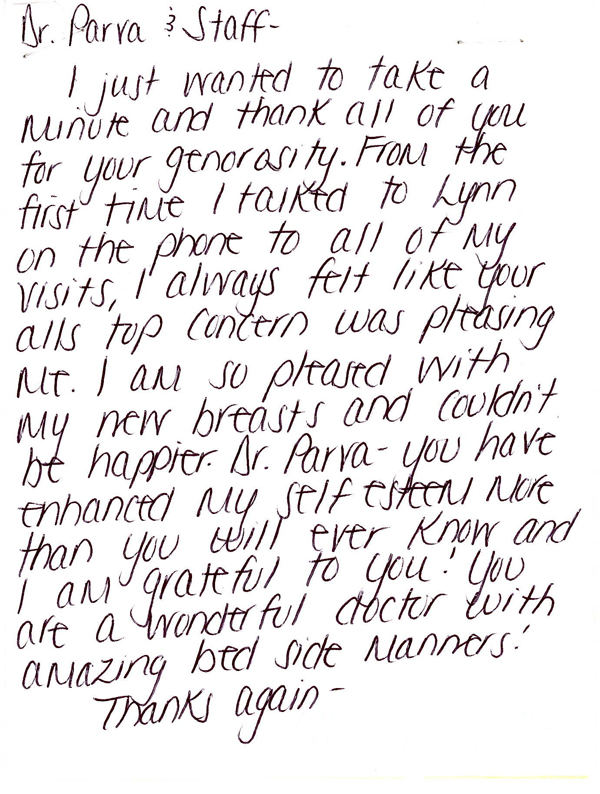 Dr. Parva & Staff-
I just wanted to take a
minute and thank all of you
for your genorasity. From the
first time I talked to Lynn
on the phone to all of my
visits, I always felt like your
alls top concern was pleasing
me. I am so pleased with
my new breasts and couldn't
be happier. Dr. Parva- you have
enhanced my self esteem more
than you will ever know and
I am grateful to you! You
are a wonderful doctor with
amazing bed side manners!
Thanks again-